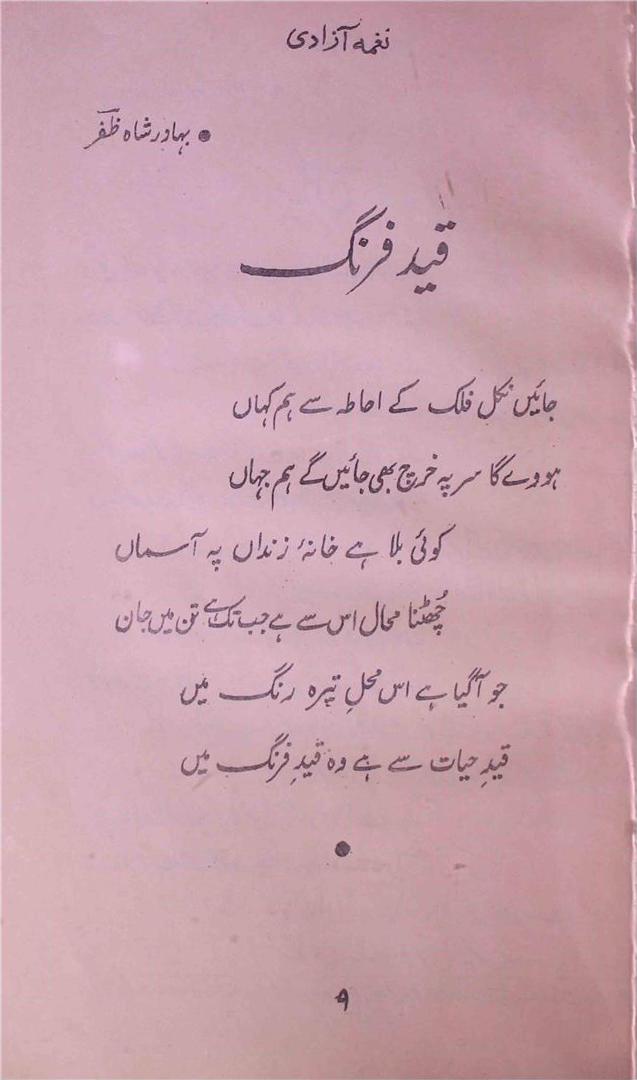 نغمہ آزادی
● بہادر شاہ ظفر
قیدِ فرنگ
جائیں نکل فلک کے احاطہ سے ہم کہاں
ہووے گا سر پہ خرچ بھی جائیں گے ہم جہاں
کوئی بلا ہے خانۂ زنداں پہ آسماں
چُھٹنا محال اس سے ہے جب تک ہے تن میں جان
جو آگیا ہے اس محلِ تیرہ رنگ میں
قیدِ حیات سے ہے وہ قیدِ فرنگ میں
●
۹